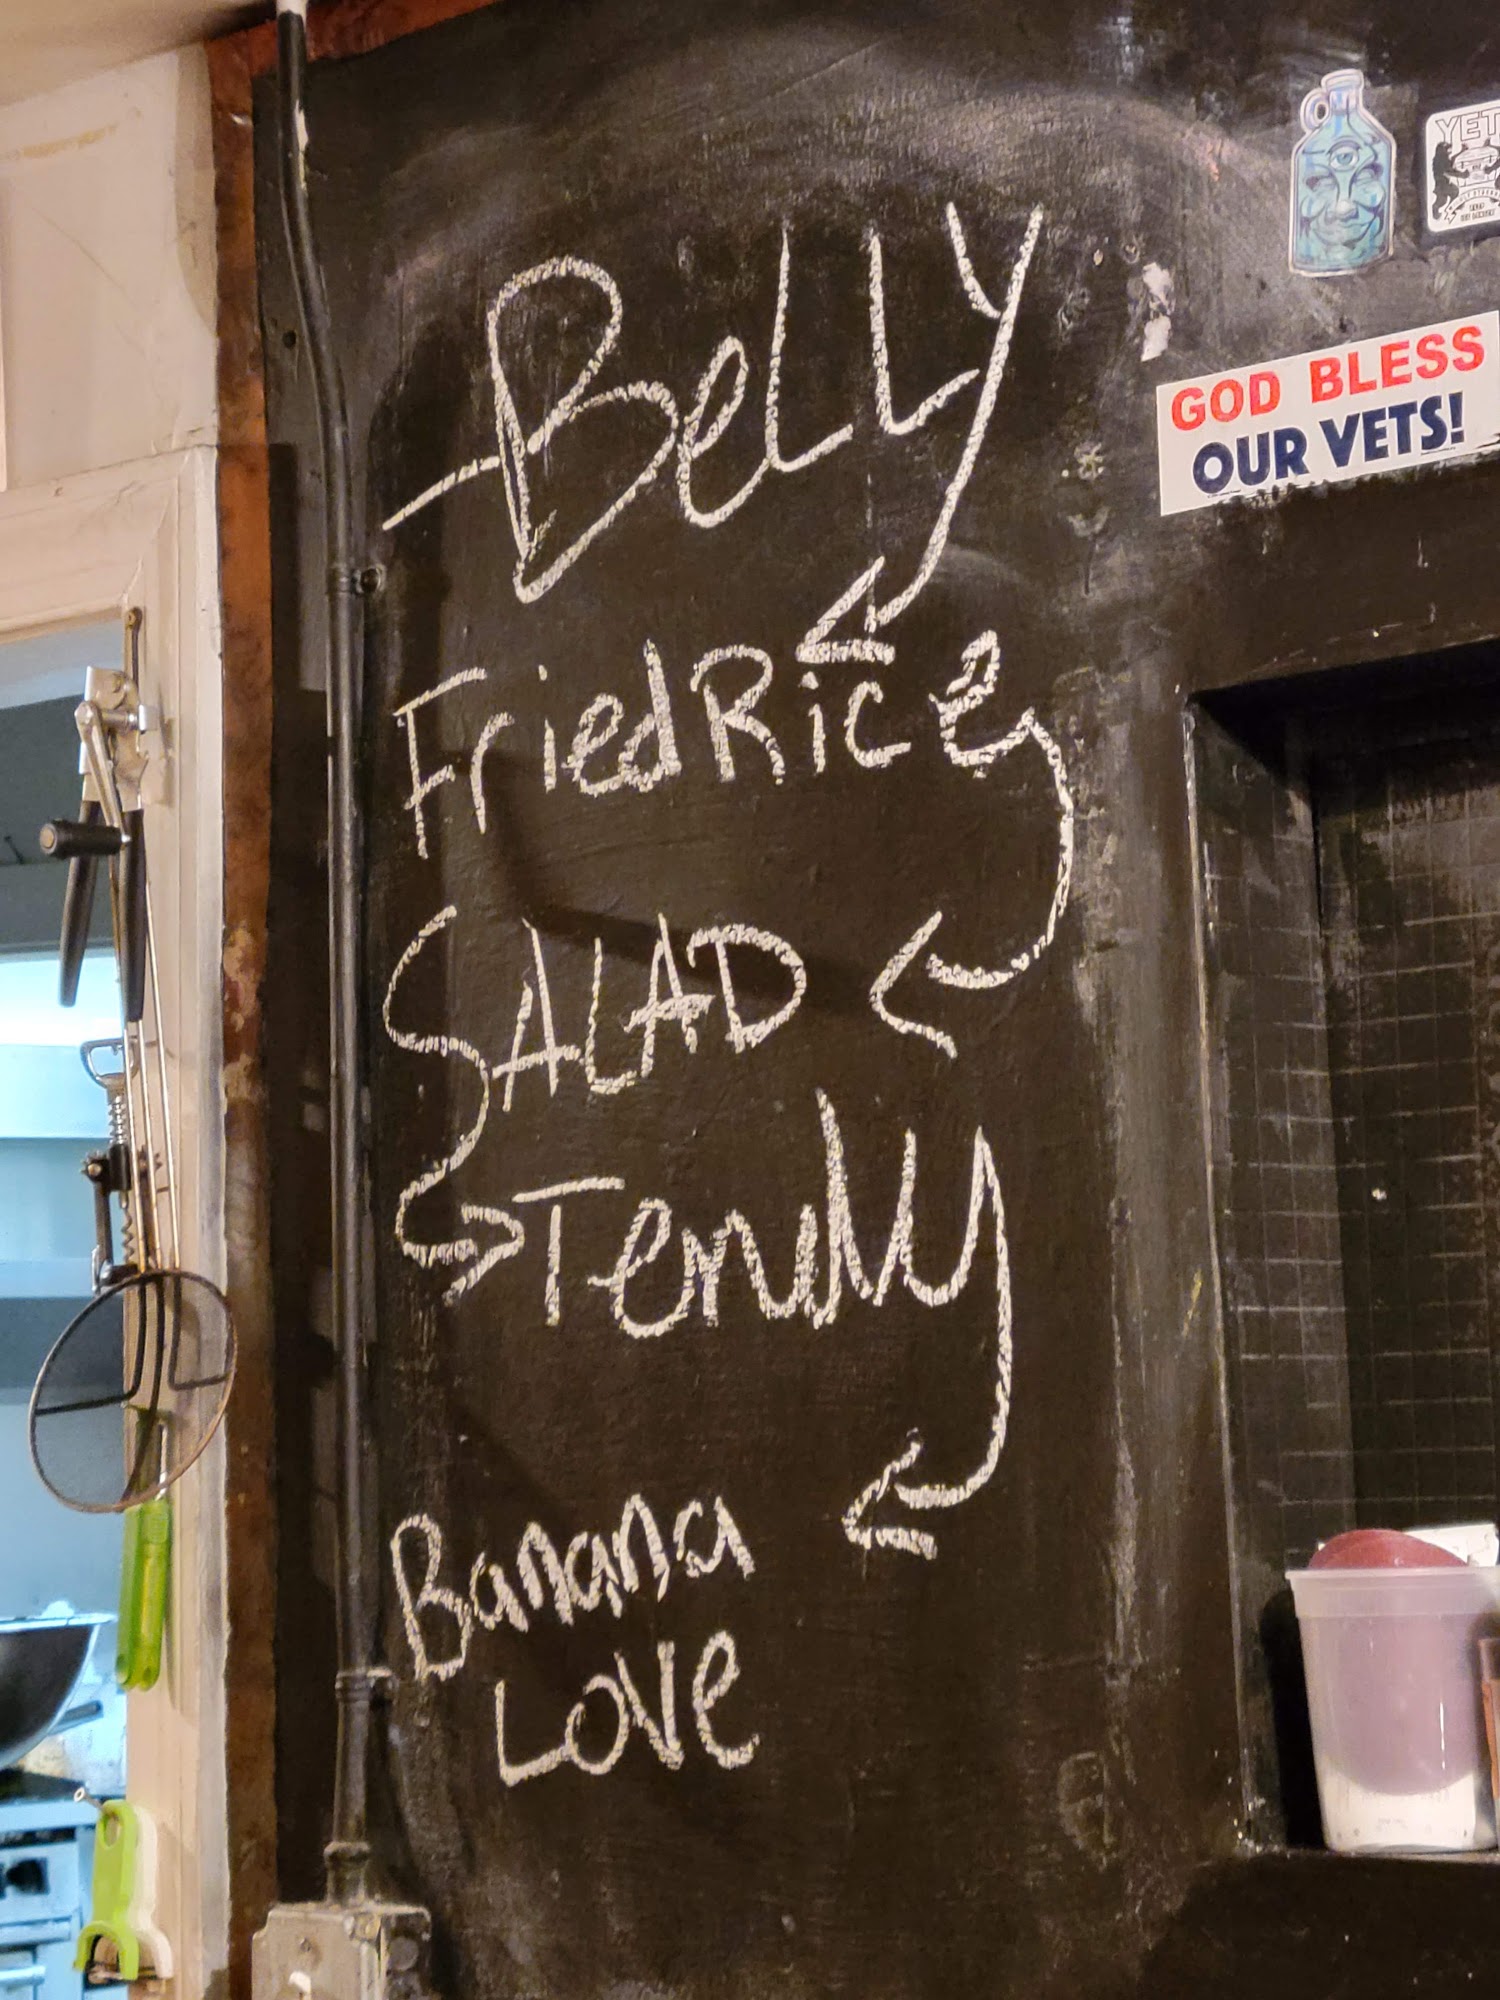 Belly
Fried Rice
SALAD
Tendy
Banana
Love
YETI
GOD BLESS
OUR VETS!